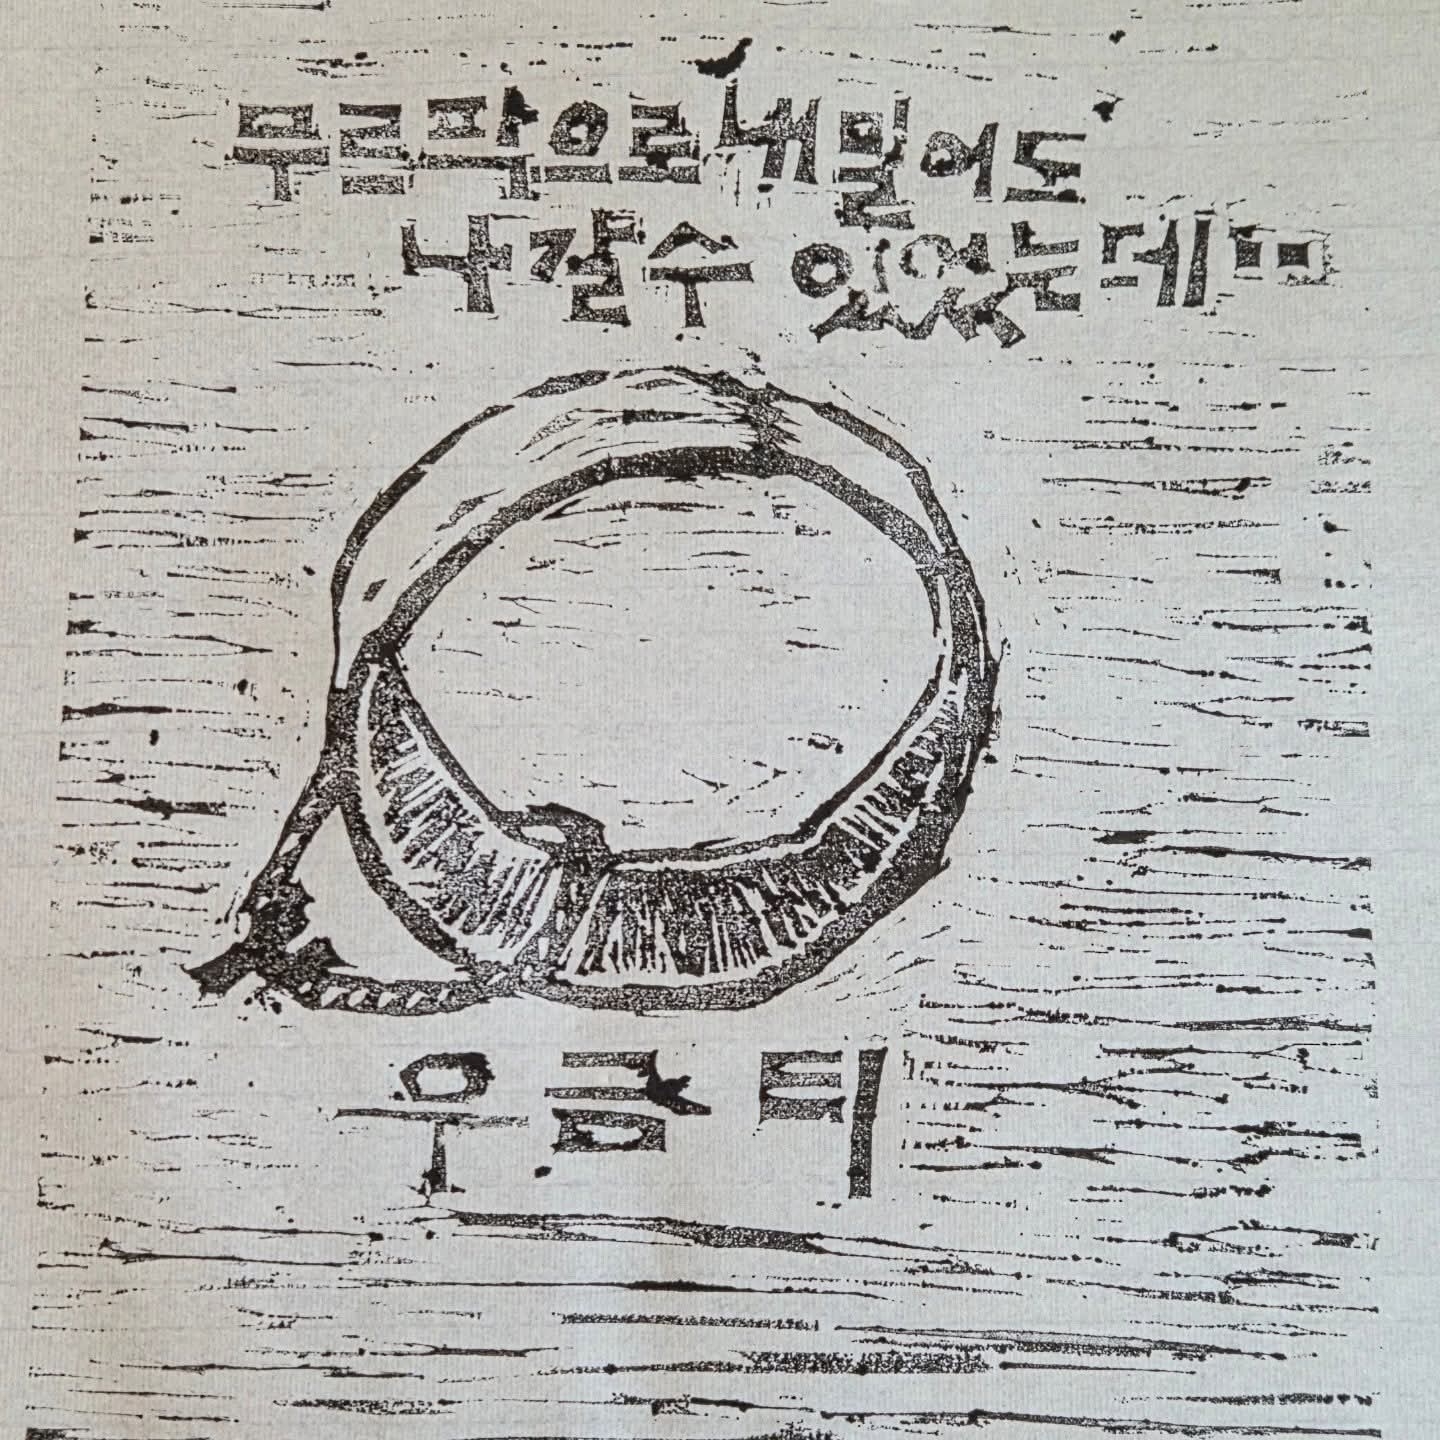 무르팍으로 내밀어도
나 갈 수 있었는데
우금티